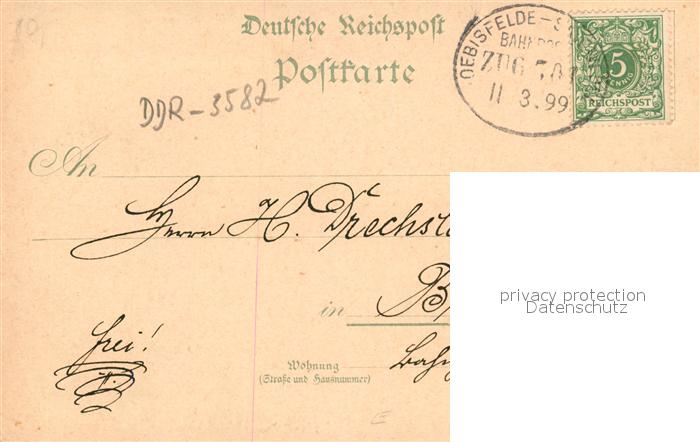 Deutsche Reichspost
Postkarte
OEBISFELDE - S
BAHNPOS
ZUG
11 3.99
5
REICHSPOST
DDR-3582
An
Herrn H. Drechsl
in B
frei!
Wohnung
(Straße und Hausnummer)
Bahn
privacy protection
Datenschutz